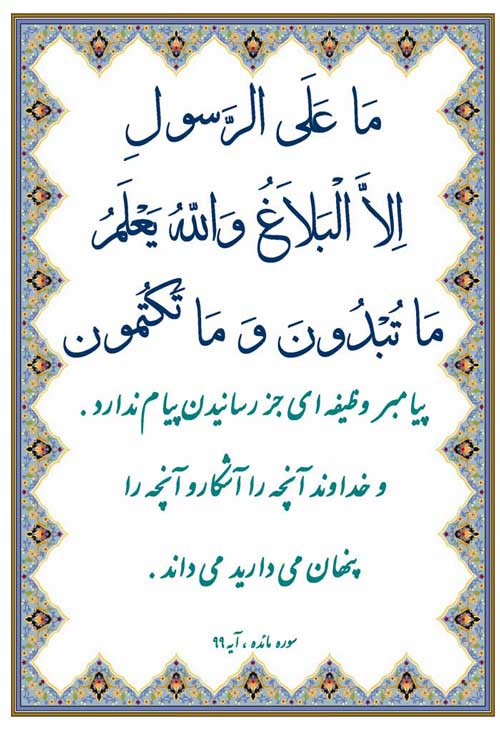 مَا عَلَى الرَّسولِ
اِلاَّ الْبَلاَغُ وَاللّهُ يَعْلَمُ
مَا تُبْدُونَ وَ مَا تَكتُمون
پیامبر وظیفه ای جز رسانیدن پیام ندارد .
و خداوند آنچه را آشکار و آنچه را
پنهان می دارید می داند .
سوره مائده ، آیه ۹۹